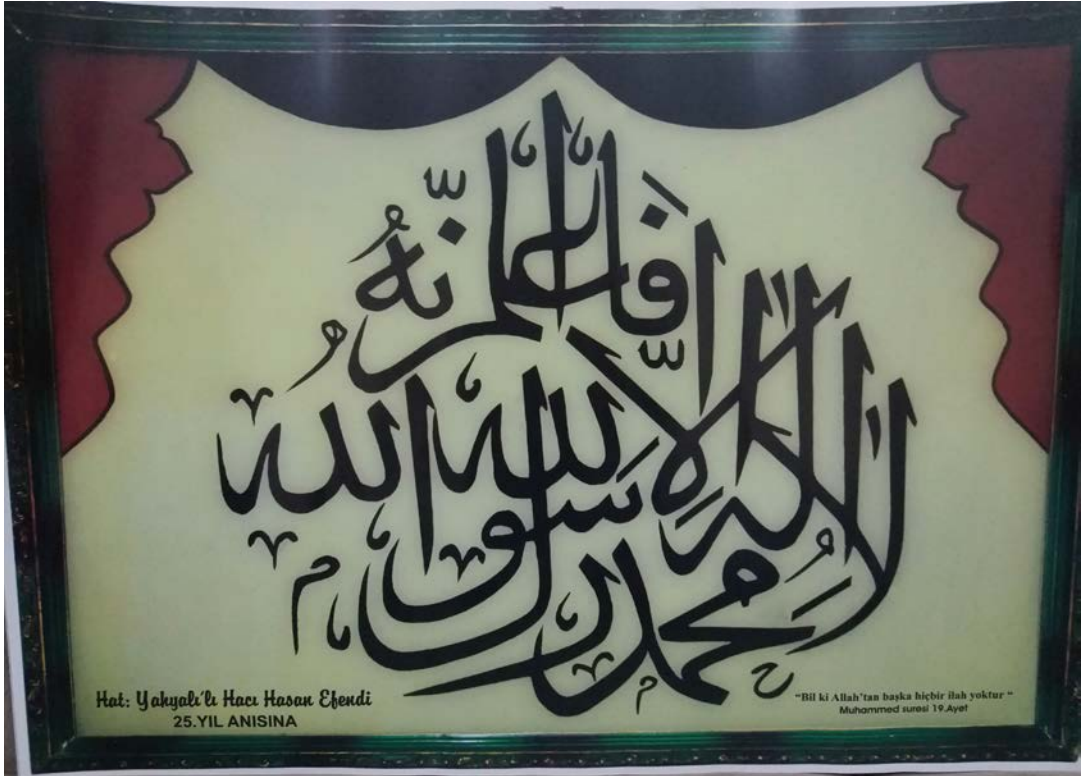 فَاعْلَمْ اَنَّهُ
لا اله الا الله
محمد رسول الله
Hat: Yahyalı'lı Hacı Hasan Efendi
25.YIL ANISINA
"Bil ki Allah'tan başka hiçbir ilah yoktur "
Muhammed suresi 19.Ayet